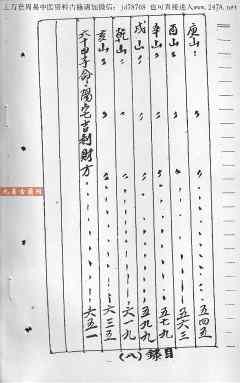 上万套周易中医资料古籍请加微信：jd78708 也可直接进入www.2478.net
庚山 五四五
酉山 五六三
辛山 五七九
戌山 五九九
乾山 六一九
亥山 六三五
六十甲子命陽宅吉利財方 六五一
目錄（八）
九易古籍网